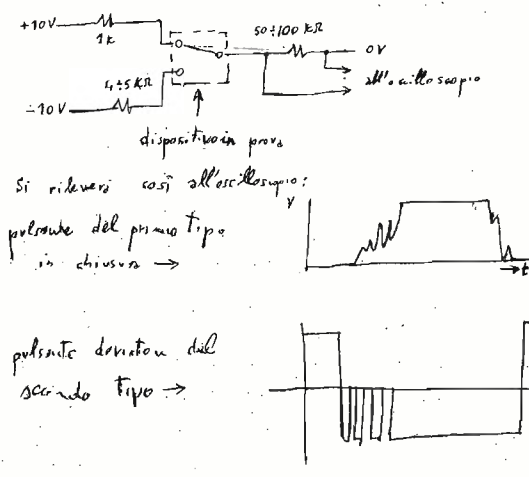 +10V
1k
50÷100 kΩ
0V
4÷5 kΩ
-10V
all'oscilloscopio
dispositivo in prova
Si rileverà così all'oscilloscopio:
pulsante del primo tipo
in chiusura →
V
t
pulsante deviatore del
secondo tipo →